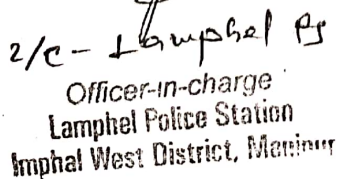 2/C - Lamphel PS
Officer-in-charge
Lamphel Police Station
Imphal West District, Manipur